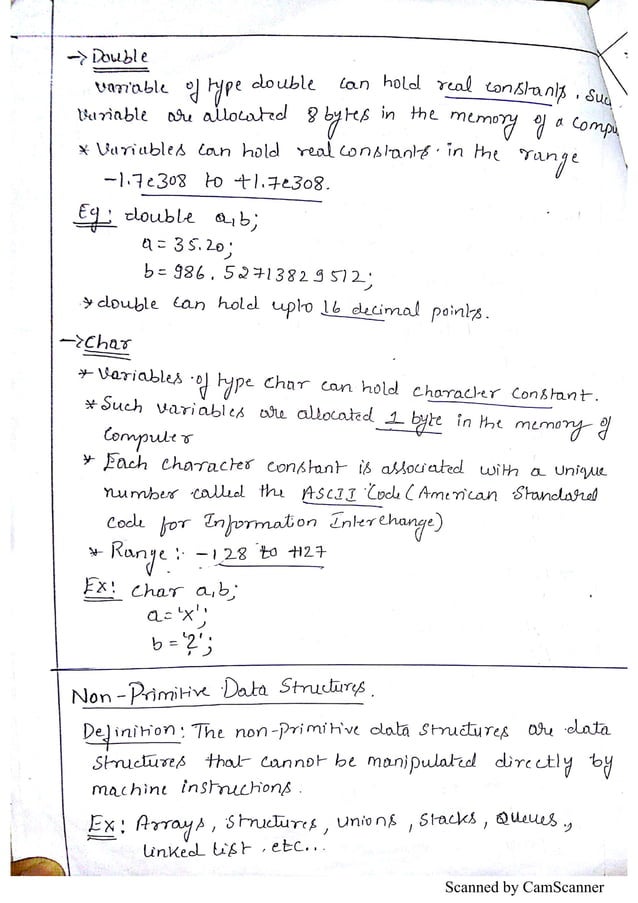 → Double
variable of type double can hold real constants. Suc
variable are allocated 8 bytes in the memory of a compu
* Variables can hold real constants in the range
-1.7e308 to +1.7e308.
Eg: double a,b;
a = 35.20;
b = 986.52713829512;
* double can hold upto 16 decimal points.
→ Char
* Variables of type char can hold character constant.
* Such variables are allocated 1 byte in the memory of
Computer
* Each character constant is associated with a unique
number called the ASCII Code (American Standard
code for Information Interchange)
* Range :- -128 to +127
EX: char a,b;
a='x';
b='?';
Non-Primitive Data Structures.
Definition: The non-primitive data structures are data
structures that cannot be manipulated directly by
machine instructions.
EX: Arrays, Structures, unions, stacks, Queues,
linked list, etc...
Scanned by CamScanner